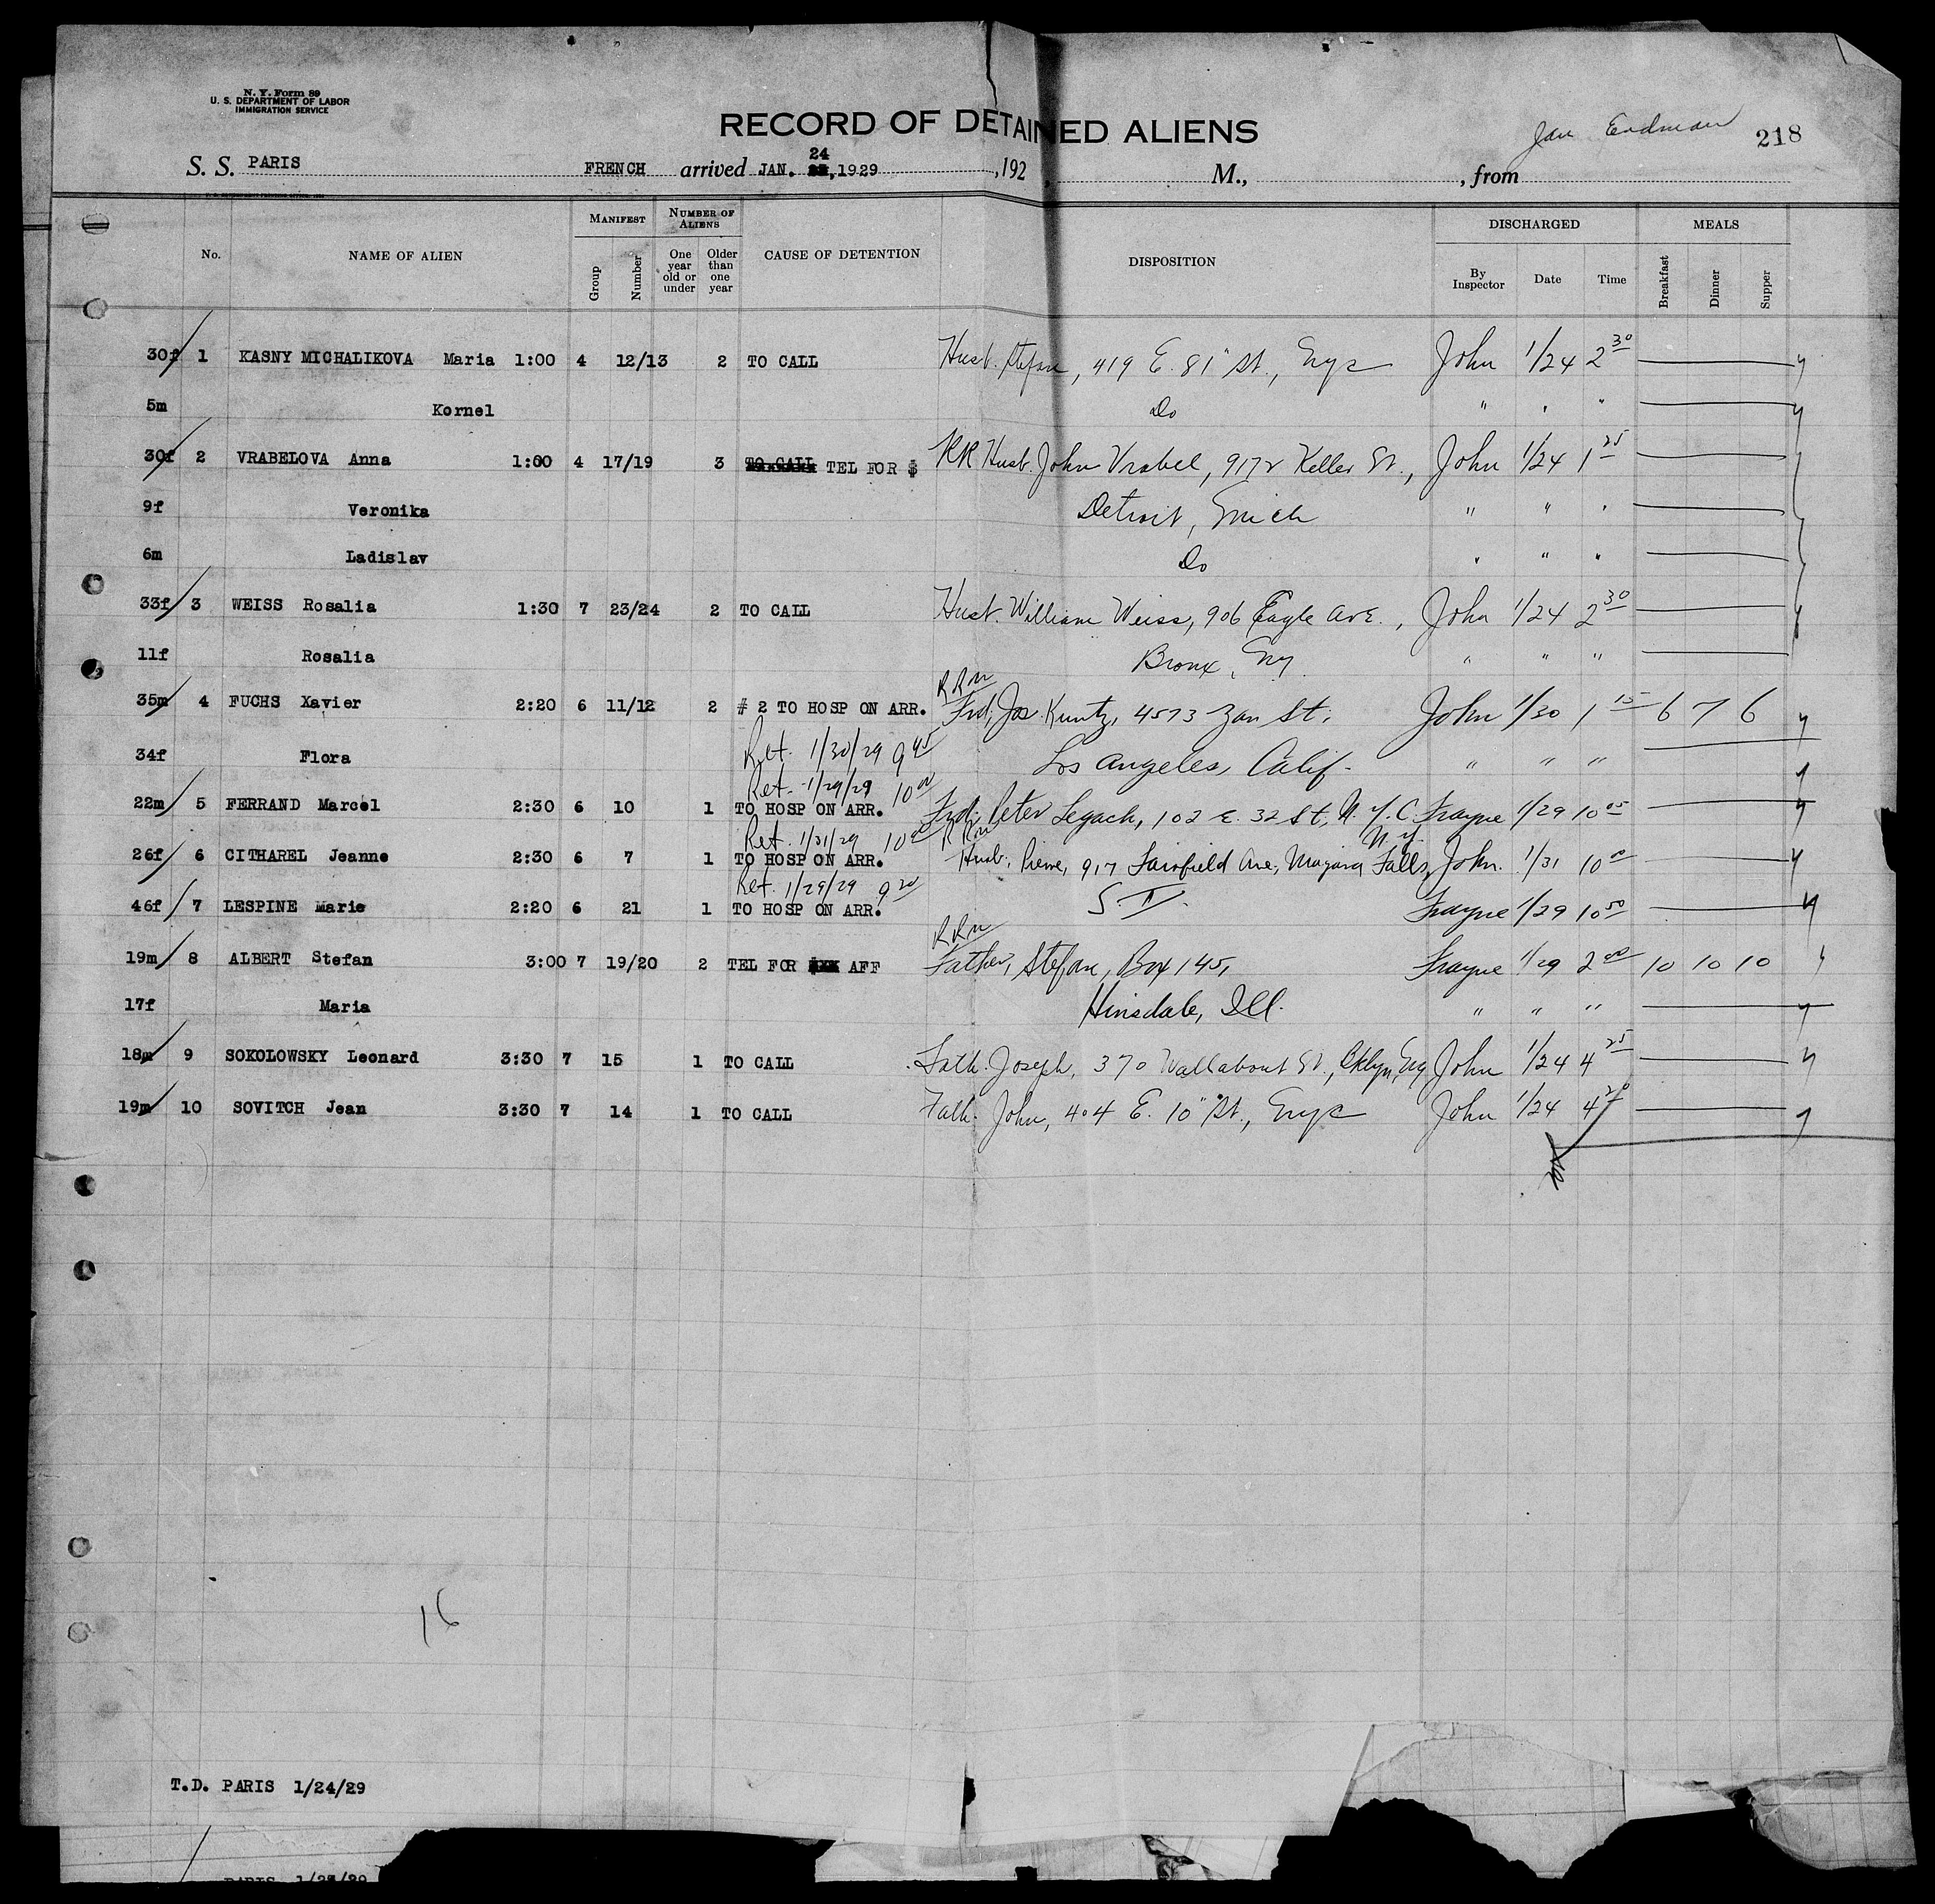 N. Y. Form 89
U. S. DEPARTMENT OF LABOR
IMMIGRATION SERVICE
RECORD OF DETAINED ALIENS
Jan 218
S. S. PARIS FRENCH arrived JAN. 24, 1929 , 192 M., , from
No. NAME OF ALIEN MANIFEST Group Number NUMBER OF ALIENS One year old or under Older than one year CAUSE OF DETENTION DISPOSITION DISCHARGED By Inspector Date Time MEALS Breakfast Dinner Supper
30f 1 KASNY MICHALIKOVA Maria 1:00 4 12/13 2 TO CALL Husb. Stefan, 419 E. 81" St., Nyc John 1/24 2 30
5m Kornel Do " " "
30f 2 VRABELOVA Anna 1:00 4 17/19 3 TO CALL TEL FOR $ RR Husb. John Vrabel, 9172 Keller St., John 1/24 1 25
9f Veronika Detroit, Mich " " "
6m Ladislav Do " " "
33f 3 WEISS Rosalia 1:30 7 23/24 2 TO CALL Husb. William Weiss, 906 Eagle Ave., John 1/24 2 30
11f Rosalia Bronx, Ny " " "
35m 4 FUCHS Xavier 2:20 6 11/12 2 # 2 TO HOSP ON ARR. RRm Frd, Jos. Kuntz, 4573 Zan St. John 1/30 1 15 6 7 6
34f Flora Ret. 1/30/29 9 45 Los Angeles, Calif. " " "
Ret. 1/29/29 10 00
22m 5 FERRAND Marcel 2:30 6 10 1 TO HOSP ON ARR. Frd. Peter Legach, 102 E. 32 St, N.Y.C. Frayne 1/29 10 05
Ret. 1/31/29 10 00 RRm N.Y.
26f 6 CITHAREL Jeanne 2:30 6 7 1 TO HOSP ON ARR. Husb. Pierre, 917 Fairfield Ave, Niagara Falls, John. 1/31 10 00
Ret. 1/29/29 9 20
46f 7 LESPINE Marie 2:20 6 21 1 TO HOSP ON ARR. S.I. Frayne 1/29 10 50
RRm
19m 8 ALBERT Stefan 3:00 7 19/20 2 TEL FOR AFF Father, Stefan, Box 145, Frayne 1/29 2 00 10 10 10
17f Maria Hinsdale, Ill. " " "
18m 9 SOKOLOWSKY Leonard 3:30 7 15 1 TO CALL Fath. Joseph, 370 Wallabout St., Bklyn, Ny John 1/24 4 25
19m 10 SOVITCH Jean 3:30 7 14 1 TO CALL Fath. John, 404 E. 10" St., Nyc John 1/24 4 20
16
T.D. PARIS 1/24/29
PARIS